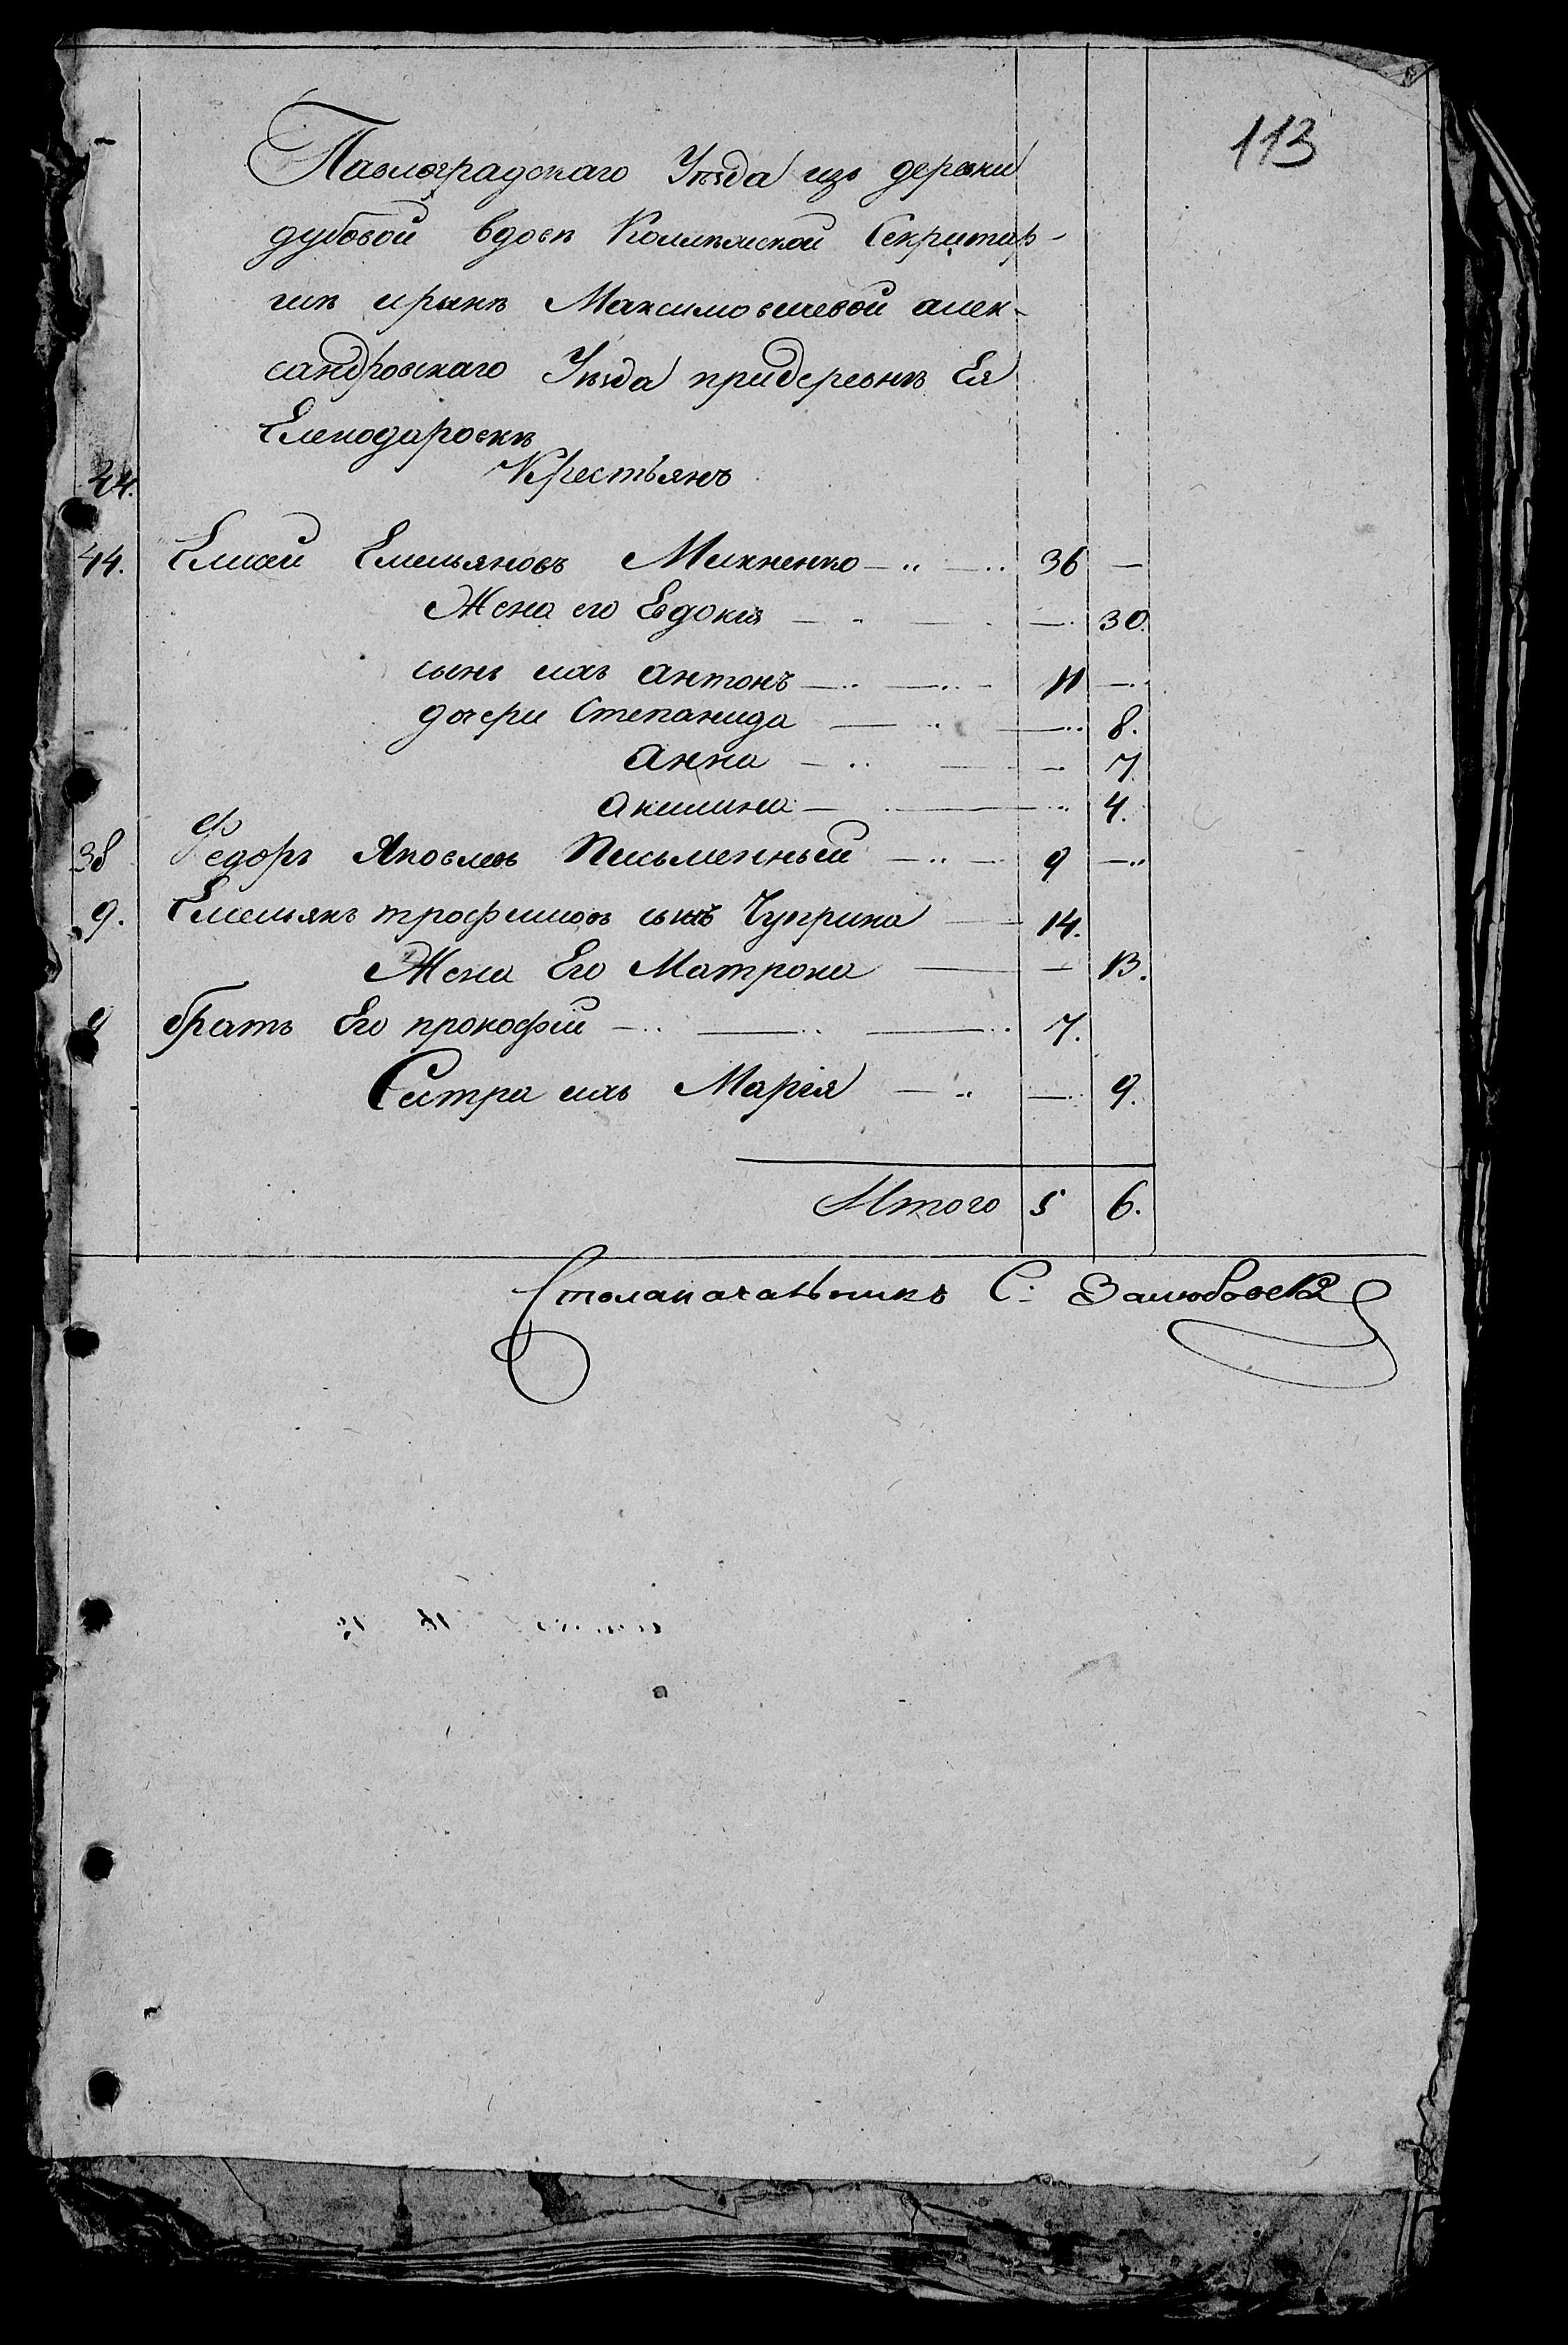 113
Павлоградскаго Уѣзда изъ деревни
дубовой вдовѣ Колѣжской Секритар-
шѣ ирынѣ Максимовичевой алек-
сандровскаго Уѣзда придеревнѣ Ея
Еленодаровкѣ
24. Крестьянъ
44. Елисей Емельяновъ Михненко — 36 —
Жена его Евдокія — — 30.
сынъ ихъ антонъ — 11 —
дочери Степанида — — 8.
Анна — — 7
акилина — — 4.
38 Федоръ Яковлевъ Письменный — 9 —
9. Емельянъ трофимовъ сынъ Чуприна — 14.
Жена Его Матрона — — 13.
братъ Его прокофій — 7.
Сестра ихъ Марія — — 9.
Итого 5 6.
Столаначальникъ С: